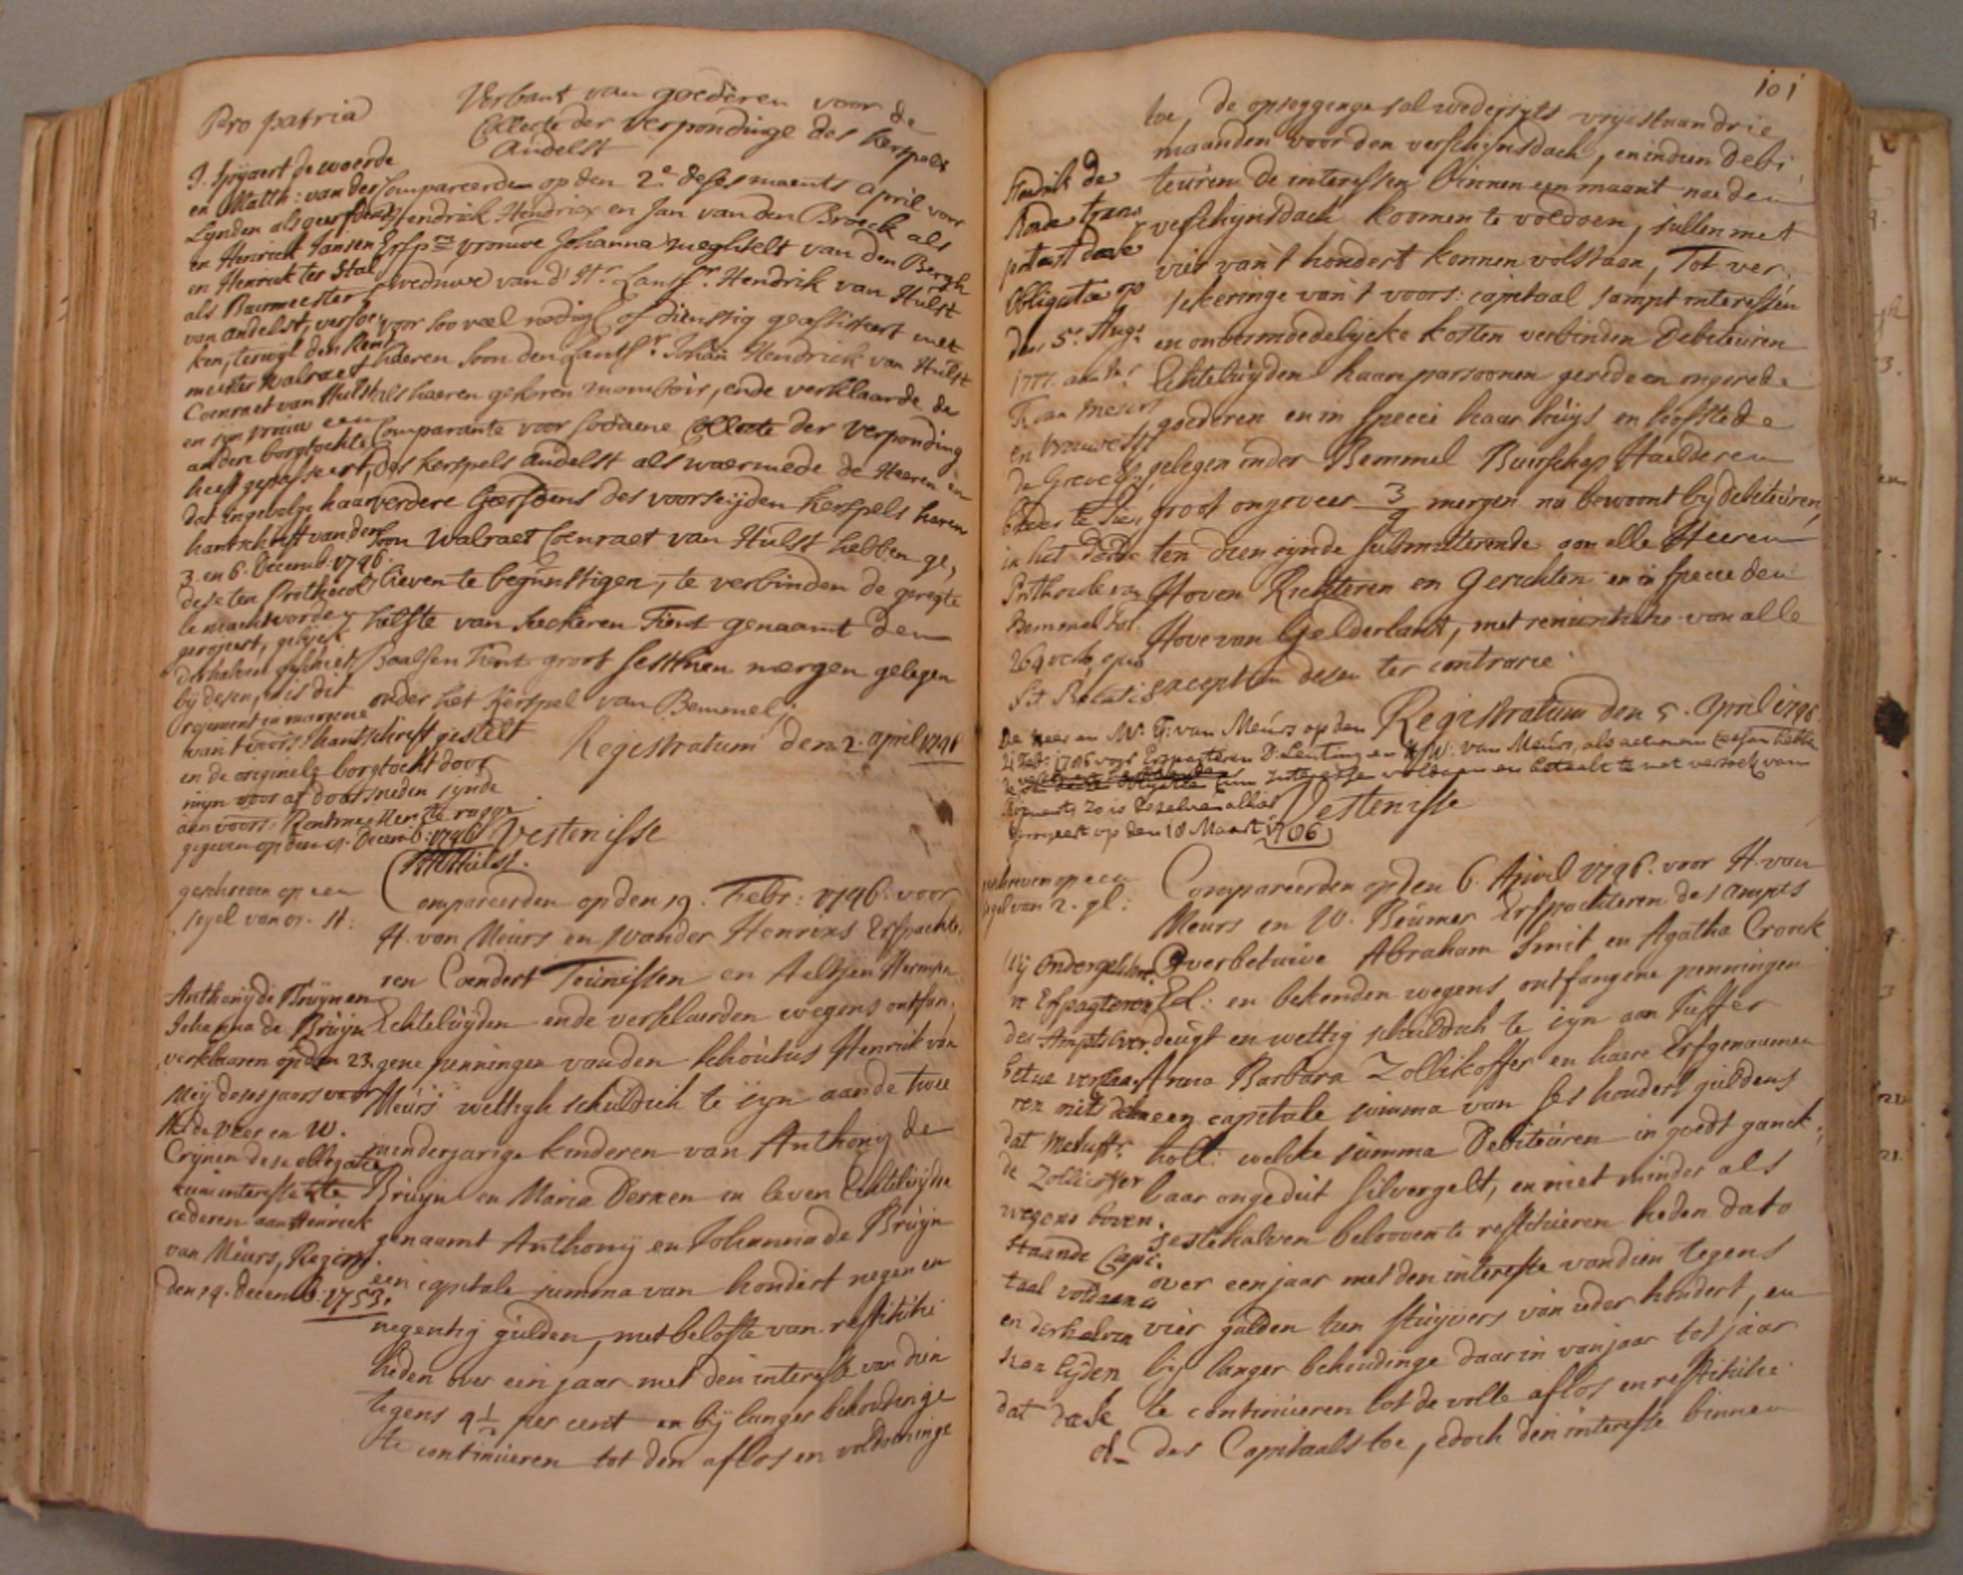 Pro patria
J. Spijaert de woerde
en Matth: van der
Lynden als geerfdens
en Henrick Jansen
en Henrick ter Stal
als Buermeesters
van Andelst, versoe-
ken, terwijl den Rent
meester Walraet
Coenraet van Hulst
en sijn vrouw een
andere borgtochte
heeft gepasseert,
dat ingevolge haar
hantschrift van den
3 en 6. Decemb. 1746.
dese ten Prothocol
le mach worden
geroyeert, gelijck
derhalven geschiet
bij desen, en is dit
Royement in margine
van 't voors: hantschrift gestelt
en de originele borgtocht door
mijn voor af doorsneden sijnde
aen voors: Rentmeester te rugge
gegeven op den 9. Decemb: 1746
Verbant van goederen voor de
Collecte der verpondinge des Kerspels
Andelst
Compareerden op den 2e. deses maents April voor
Hendrick Hendrix en Jan van den Broeck als
Erfpers vrouwe Johanna Meghtelt van den Bergh
weduwe van d' Hr. Lantsr. Hendrik van Hulst
voor soo veel nodigh of dienstig geassisteert met
haeren soon den Lantsr. Johan Hendrick van Hulst
als haeren gekoren momboir, ende verklaarde de
Comparante voor sodaene Collecte der verponding
des kerspels Andelst als waermede de Heeren en
verdere Geerfdens des voorseijden kerspels haren
soon Walraet Coenraet van Hulst hebben ge,
lieven te begunstigen, te verbinden de geregte
helfte van seekeren Tient genaamt den
Baalsen Tient groot sesthien mergen gelegen
onder het Kerspel van Bemmel;
Registratum den 2. april 1746
Vestenisse
geschreven op een
segel van 01. St:
Compareerden op den 19. Febr: 1746. voor
H. van Meurs en Wander Henrixs Erfpachte
ren Coendert Teunissen en Aeltjen Hermsen
Echtelüyden ende verklaerden wegens ontfan,
gene penningen van den Schoutus Henrik van
Meurs wettigh schuldich te sijn aan de twee
minderjarige kinderen van Anthonij de
Bruijn en Maria Derxen in leven Echtelüyden
genaamt Anthonij en Johanna de Bruijn
een capitale summa van hondert negen en
negentig gulden, met belofte van restitutie
heden over een jaar met den interesse van dien
tegens 4 1/2 per cent en bij langer behoudinge
te continueren tot den aflos en voldoeninge
Anthonij de Bruijn en
Johanna de Bruijn
verklaaren op den 23.
Meij deses jaers voor
H. de Veer en W.
Crijnen dese obligatie
cum interesse te
cederen aan Henrick
van Meurs, Regist.
den 19. Decemb: 1753.
101
toe, de opsegginge sal wedersijts vrijstaan drie
maanden voor den verschijnsdach, en indien debi,
teuren de interessen binnen een maant nae den
verschijnsdach koomen te voldoen, sullen met
vier van 't hondert konnen volstaan, Tot ver,
sekeringe van 't voors: capitaal sampt interessen
en onvermeedelijcke kosten verbinden Debiteuren
Echtelüyden haar persoonen gerede en ongerede
goederen en in specie haar huys en hofstede
gelegen onder Bemmel Buirschap Haelderen
groot ongeveer 3/4 mergen nu bewoont bij debiteuren,
ten dien eijnde submitterende aan alle Heeren
Hoven Richteren en Gerichten en in specie den
Hove van Gelderlant, met renuntiatie van alle
exceptien desen ter contrarie.
Registratum den 5. April 1746.
Hendrik de
Rode trans
porteert dese
Obligatie op
den 5e. Augs.
1777. aan Hr.
T. van Meurs
en vrouwe
de Greve
breder te sien
in het
Prothocolle van
Bemmel fol:
De Heer en Mr. T: van Meurs op den
Vestenisse
geroyeert op den 18 Maart 1786
geschreven op een
segel van 2. gl:
Compareerden op den 6. April 1746. voor H. van
Meurs en W. Beumer Erfpachteren des Ampts
Overbetuwe Abraham Smit en Agatha Croock
El: en bekenden wegens ontfangene penningen
deugt en wettig schuldich te sijn aan Juffer
Anna Barbara Zollikoffer en haere Erfgenaamen
een capitale summa van ses hondert guldens
holl: welcke summa Debiteuren in goedt ganck,
baar ongeduit silvergelt, en niet minder als
sestehalven belooven te restitueren heden dato
over een jaar met den interesse van dien tegens
vier gulden tien stuyvers van ieder hondert, en
bij langer behoudinge daarin van jaar tot jaar
te continueren tot de volle aflos en restitutie
des Capitaals toe, edoch den interesse binnen
Wij ondergeschr.
n. Erfpagteren
des Ampts Over
betuwe verklaa
ren mits desen
dat Mejuffr.
de Zollicoffer
wegens boven
staande Capi,
taal voldaan is
en derhalven
kan lijden
dat dese